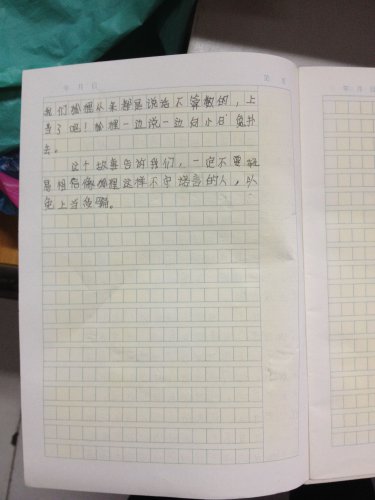 年 月 日
我们狐狸从来都是说话不算数的，上
当了吧！狐狸一边说一边向小白兔扑
去。
这个故事告诉我们，一定不要轻
易相信像狐狸这样不守诺言的人，以
免上当受骗。